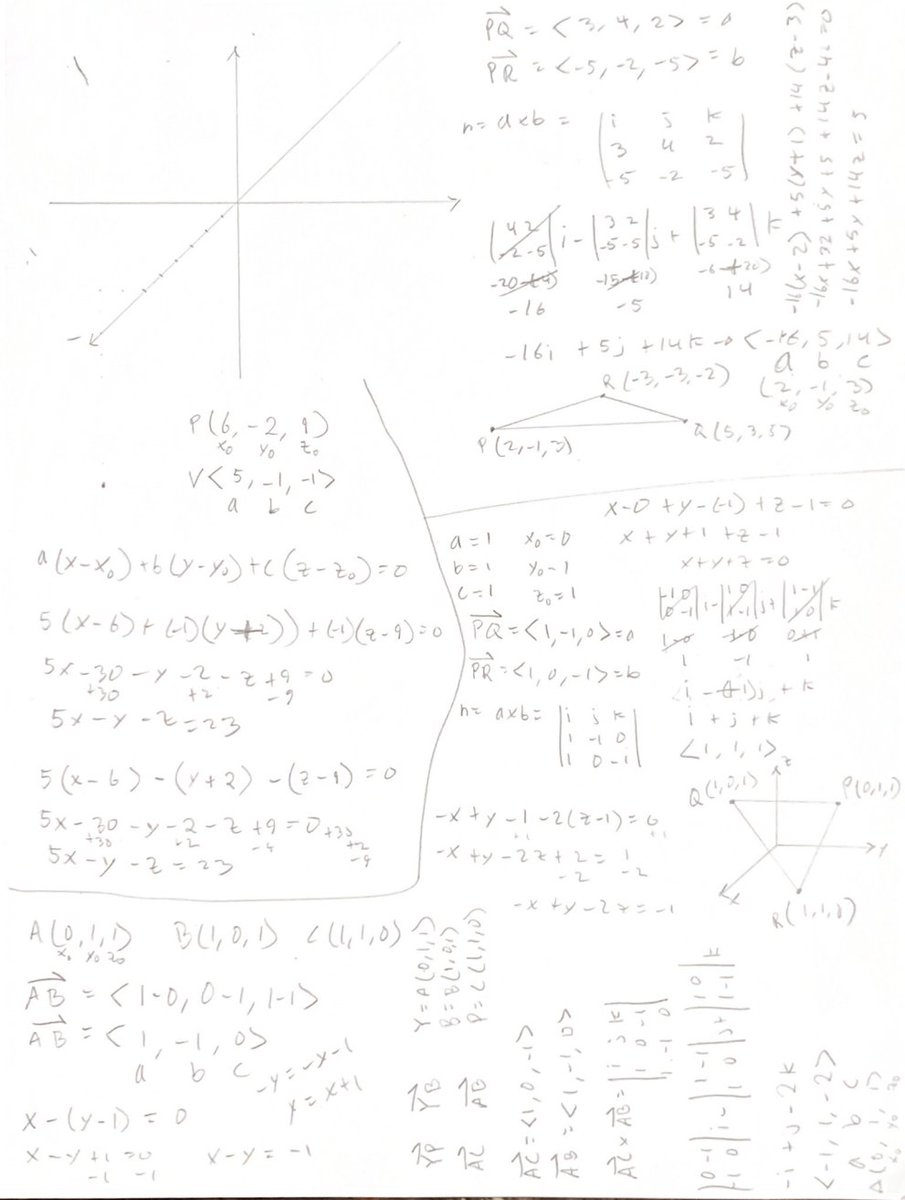 PQ = < 3, 4, 2 > = a
PR = < -5, -2, -5 > = b
n = a x b = | i j k
3 4 2
-5 -2 -5 |
|4 2
-2 -5| i - |3 2
-5 -5| j + |3 4
-5 -2| k
-16 -5 14
-16i + 5j + 14k → < -16, 5, 14 >
a b c
(2, -1, 3)
x0 y0 z0
R (-3, -3, -2)
P(2, -1, 3)
Q (5, 3, 5)
-16(x-2) + 5(y+1) + 14(z-3)
-16x + 32 + 5y + 5 + 14z - 42 = 0
-16x + 5y + 14z = 5
P(6, -2, 9)
x0 y0 z0
V < 5, -1, -1 >
a b c
a(x-x0) + b(y-y0) + c(z-z0) = 0
5(x-6) + (-1)(y+2)) + (-1)(z-9) = 0
5x -30 - y -2 - z +9 = 0
+30 +2 -9
5x - y - z = 23
5(x-6) - (y+2) - (z-9) = 0
5x -30 - y - 2 - z + 9 = 0
+30 +2 -9
5x - y - z = 23
x-0 + y-(-1) + z-1 = 0
x + y+1 + z-1
x+y+z = 0
a=1 x0=0
b=1 y0-1
c=1 z0=1
PQ = < 1, -1, 0 > = a
PR = < 1, 0, -1 > = b
n = a x b = | i j k
1 -1 0
1 0 -1 |
1 -1 1
i - (-1)j + k
i + j + k
< 1, 1, 1 >
Q(1,0,1)
P(0,1,1)
R(1,1,0)
x
y
z
-x + y - 1 - 2(z-1) = 0
+1 +1
-x + y - 2z + 2 = 1
-2 -2
-x + y - 2z = -1
A(0,1,1) B(1,0,1) C(1,1,0)
x0 y0 z0
AB = < 1-0, 0-1, 1-1 >
AB = < 1, -1, 0 >
a b c
-y = -x-1
y = x+1
x - (y-1) = 0
x - y + 1 = 0
-1 -1
x - y = -1
Y = A(0,1,1)
B = B(1,0,1)
P = C(1,1,0)
YP YB
AC AB
AC = < 1, 0, -1 >
AB = < 1, -1, 0 >
AC x AB = | i j k
1 0 -1
1 -1 0 |
|0 -1
-1 0| i - |1 -1
1 0| j + |1 0
1 -1| k
-i + j - 2k
< -1, 1, -2 >
a b c
A(0, 1, 1)
x0 y0 z0